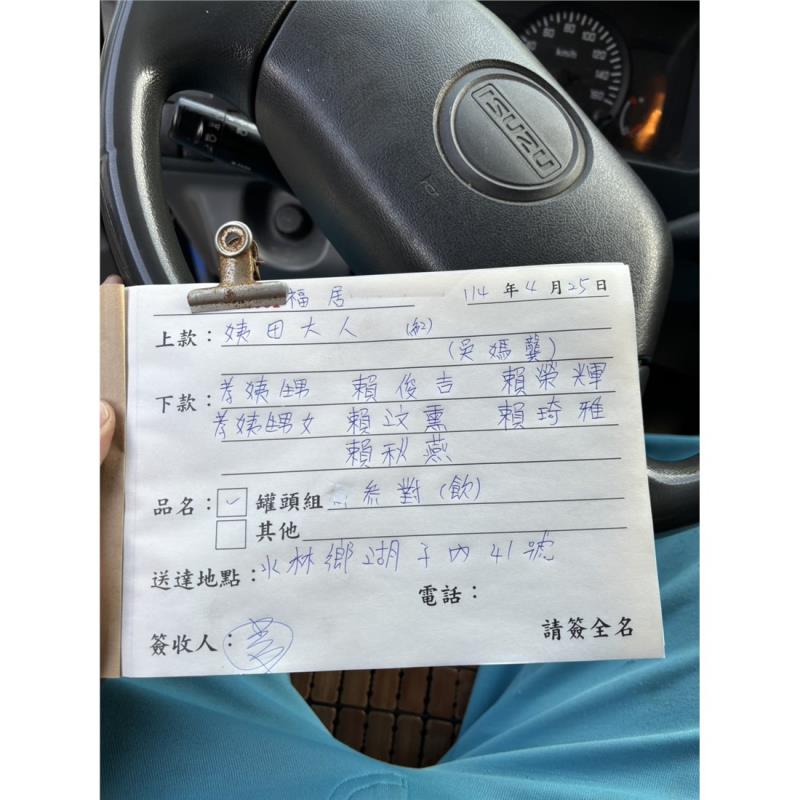 ISUZU
km/h
福居
114 年 4 月 25 日
上款：姨母大人 (紅)
(吳媽龔)
下款：孝姨甥男 賴俊吉 賴榮輝
孝姨甥女 賴玟熏 賴琦雅
賴秋燕
品名：✓ 罐頭組 叁對(飲)
其他
送達地點：水林鄉湖子內41號
電話：
簽收人：
請簽全名